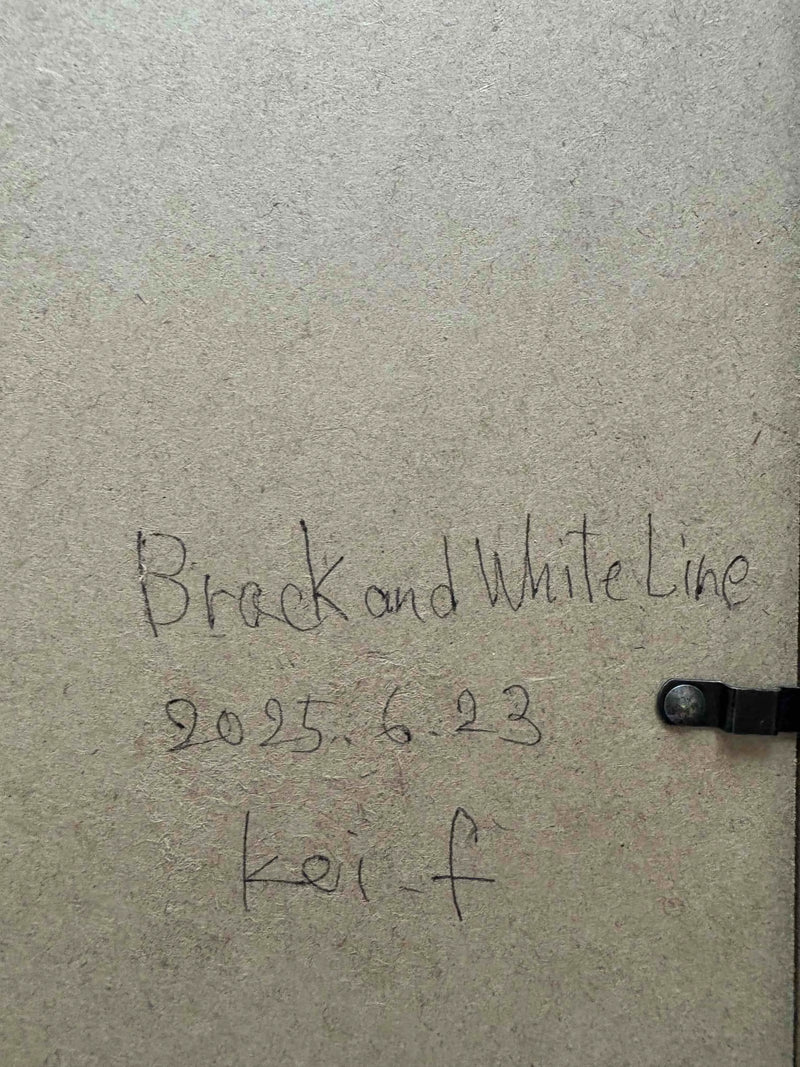 Brack and White Line
2025.6.23
kei-f